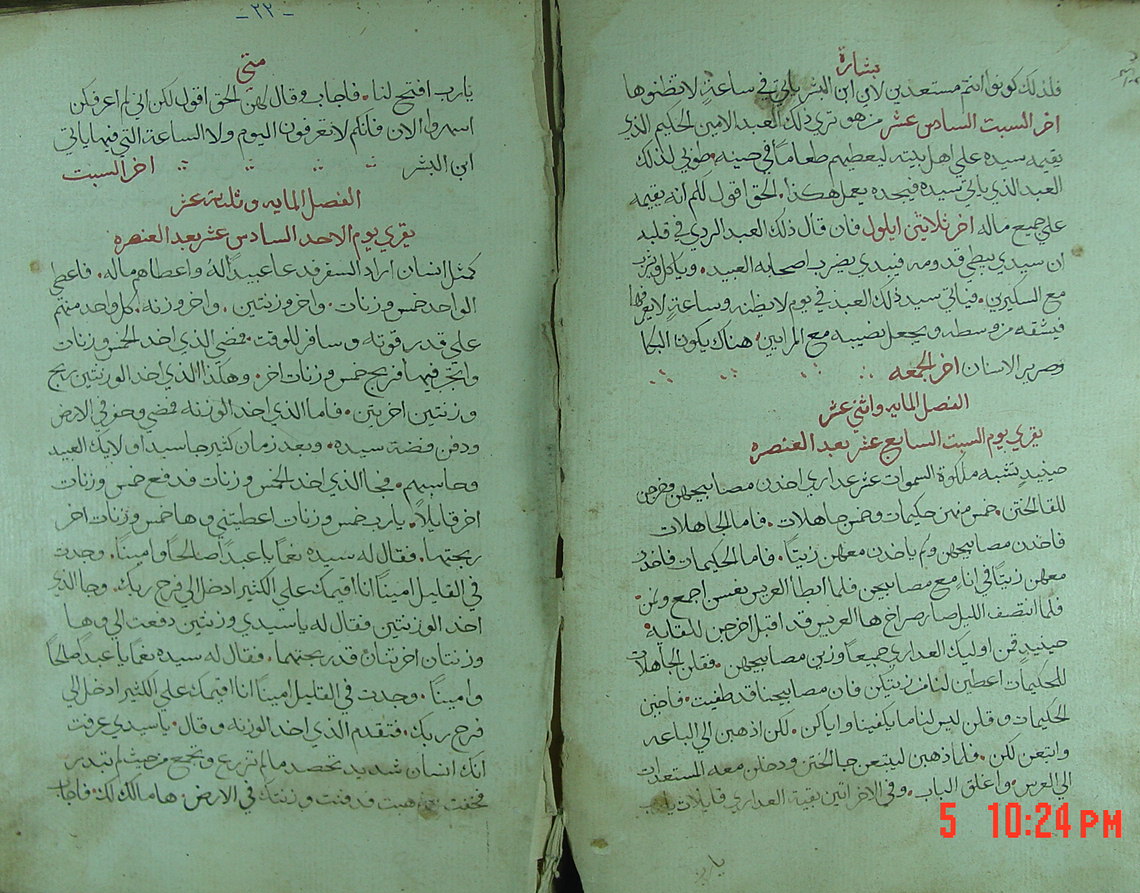 بشارة
فلذلك كونوا انتم مستعدين لان ابن البشر ياتي في ساعةٍ لا تظنوها
اخر السبت السادس عشر من هو تري ذلك العبد الامين الحكيم الذي
يقيمه سيده علي اهل بيته ليعطيهم طعاماً في حينه طوبي لذلك
العبد الذي ياتي سيده فيجده يعمل هكذا الحق اقول لكم انه يقيمه
علي جميع ماله اخر ثلاثين ايلول فان قال ذلك العبد الردي في قلبه
ان سيدي يبطي قدومه فيبدي يضرب اصحابه العبيد وياكل ويشرب
مع السكيرين فياتي سيد ذلك العبد في يوم لا يظنه وساعةٍ لا يعرفها
فيشقه من وسطه ويجعل نصيبه مع المرايين هناك يكون البكا
وصرير الاسنان اخر الجمعه
الفصل المايه واثني عشر
يقري يوم السبت السابع عشر بعد العنصره
حينيذٍ تشبه ملكوة السموات عشر عداري اخذن مصابيحهن وخرجن
للقا الختن خمس منهن حكيمات وخمس جاهلات فاما الجاهلات
فاخدن مصابيحهن ولم ياخدن معهن زيتاً فاما الحكيمات فاخدن
معهن زيتاً في اناءٍ مع مصابيحن فلما ابطا العريس نعسن اجمع ونمن
فلما انتصف الليل صار صراخ ها العريس قد اقبل اخرجن للقايه
حينيذٍ قمن اوليك العداري جميعاً وزين مصابيحهن فقلن الجاهلات
للحكيمات اعطين لنا من زيتكن فان مصابيحنا قد طفيت فاجبن
الحكيمات وقلن ليس لنا ما يكفينا واياكن لكن اذهبن الي الباعه
وابتعن لكن فلما ذهبن ليبتعن جا الختن ودخلن معه المستعدات
الي العرس واغلق الباب وفي الاخر اتين بقية العداري قايلات يارب
يارب
-٢٢-
متي
يارب افتح لنا فاجاب وقال لهن الحق اقول لكن اني لم اعرفكن
اسهروا الان فانكم لا تعرفون اليوم ولا الساعة التي فيها ياتي
ابن البشر اخر السبت
الفصل المايه وثلثة عشر
يقري يوم الاحد السادس عشر بعد العنصره
كمثل انسان اراد السفر فدعا عبيداً له واعطاهم ماله فاعطي
الواحد خمس وزنات واخر وزنتين واخر وزنه كل واحد منهم
علي قدر قوته وسافر للوقت فمضي الذي اخد الخمس وزنات
واتجر فيها فربح خمس وزنات اخر وهكذا الذي اخد الوزنتين ربح
وزنتين اخريين فاما الذي اخد الوزنه فمضي وحفر في الارض
ودفن فضة سيده وبعد زمان كثير جا سيد اوليك العبيد
وحاسبهم فجا الذي اخد الخمس وزنات فدفع خمس وزنات
اخر قايلاً يارب خمس وزنات اعطيتني وها خمس وزنات اخر
ربحتها فقال له سيده نعماً يا عبداً صالحاً واميناً وجدت
في القليل اميناً انا اقيمك علي الكثير ادخل الي فرح ربك وجا الذي
اخد الوزنتين فقال له يا سيدي وزنتين دفعت الي وها
وزنتان اخرتان قد ربحتهما فقال له سيده نعماً يا عبداً صالحاً
واميناً وجدت في القليل اميناً انا اقيمك علي الكثير ادخل الي
فرح ربك فتقدم الذي اخد الوزنه وقال يا سيدي عرفت
انك انسان شديد تحصد ما لم تزرع وتجمع من حيث لم تبدر
فخفت ودفنت وزنتك في الارض هامالك لك فاجاب
5 10:24 PM